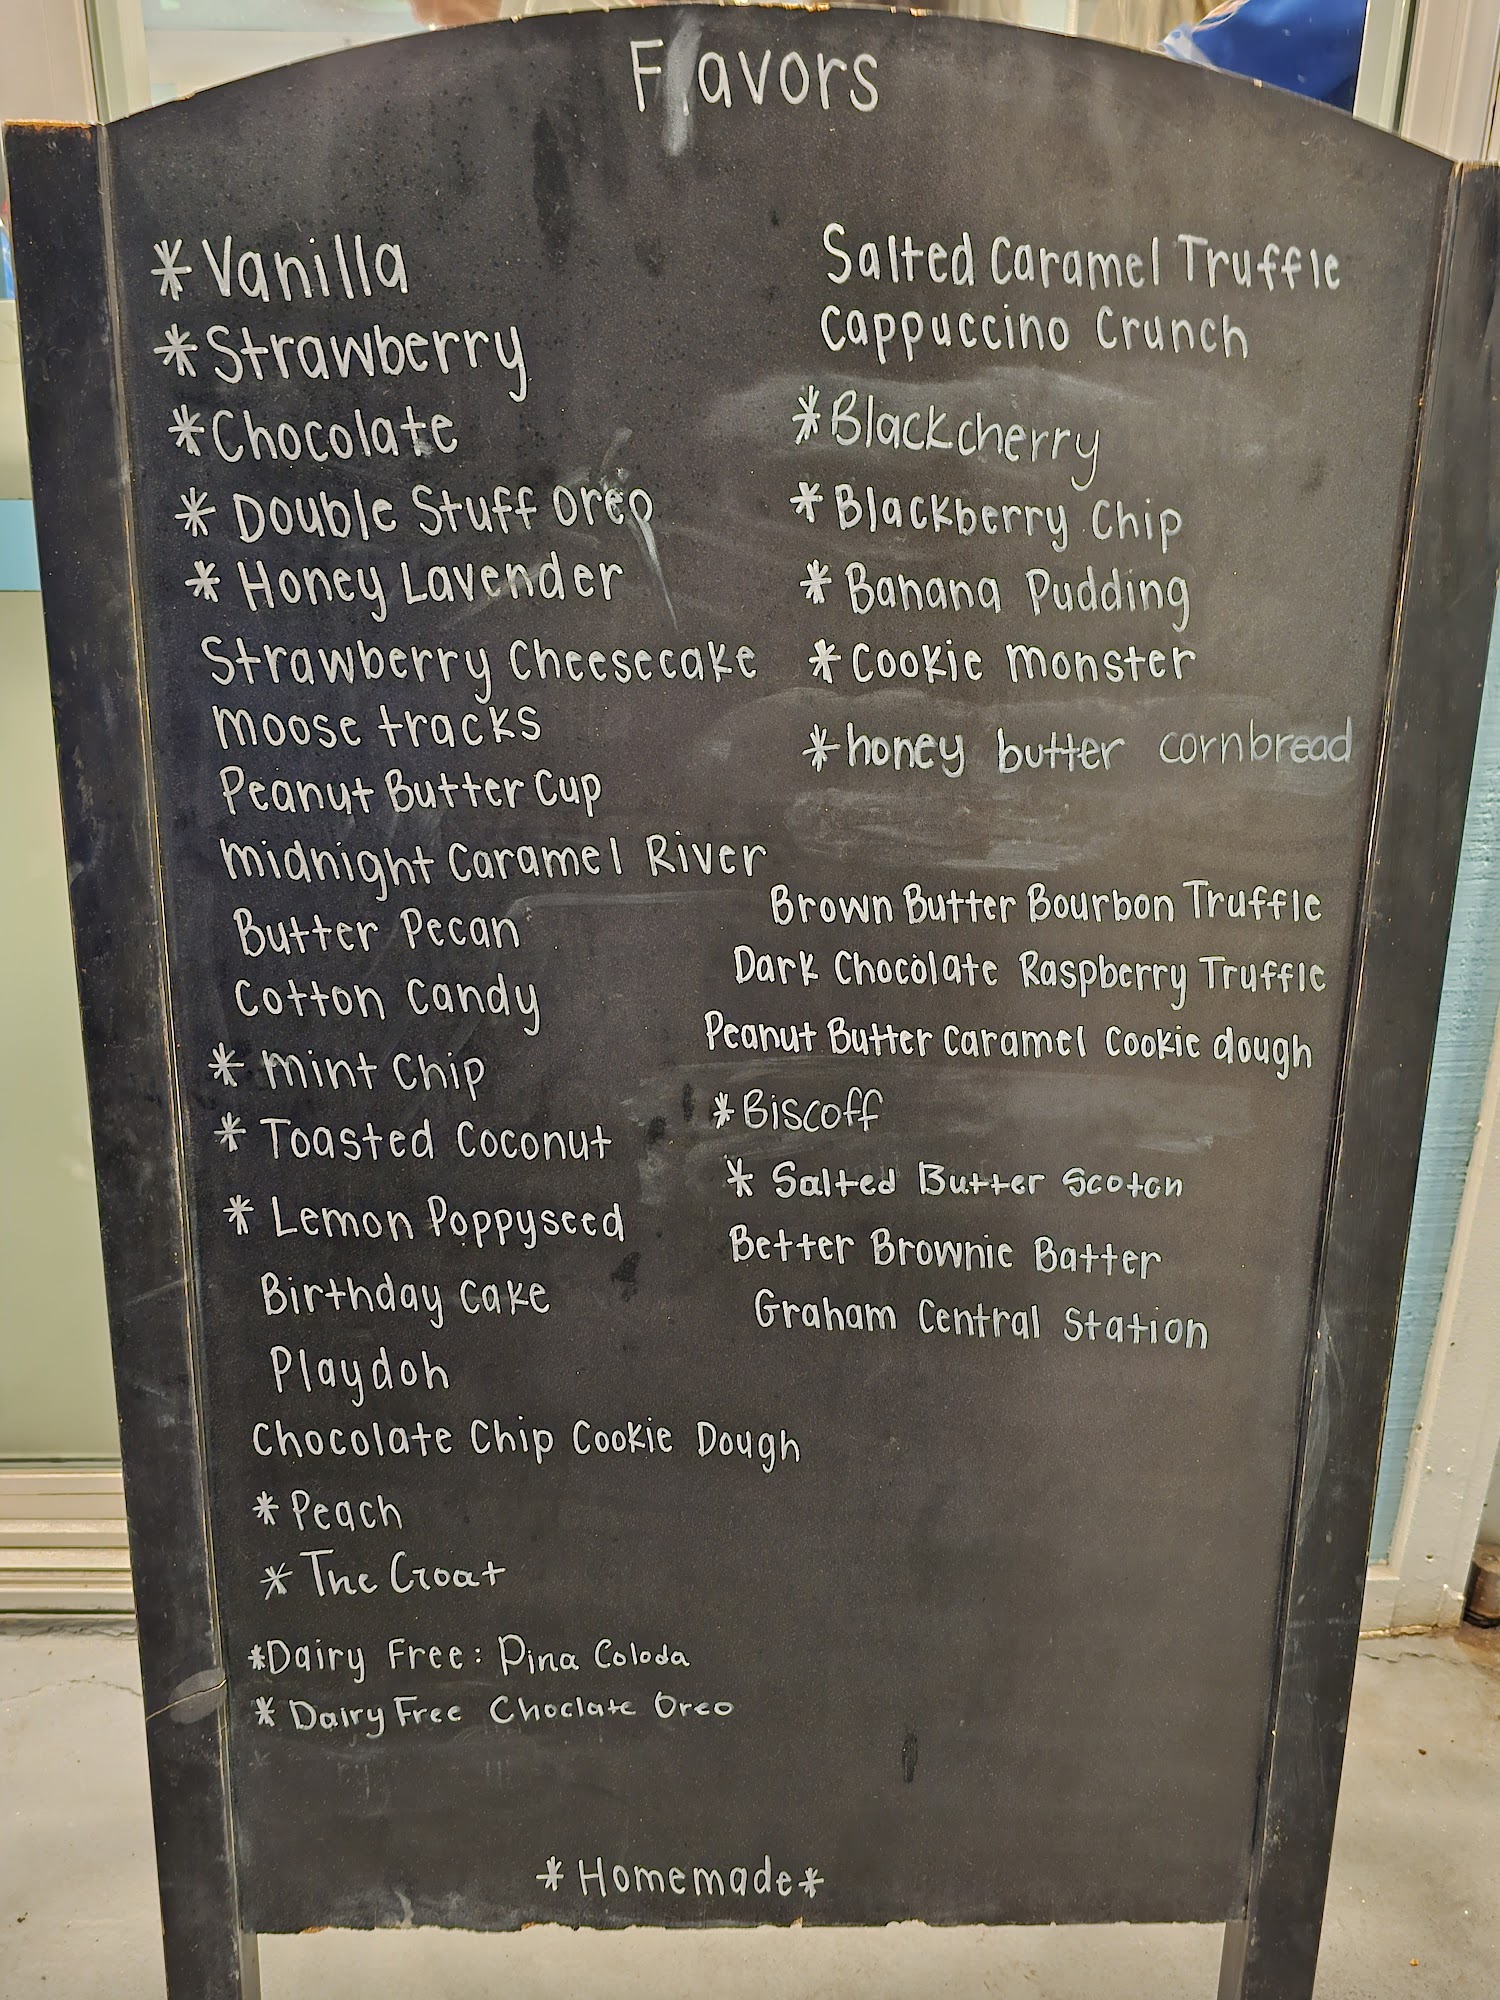 Flavors
*Vanilla
*Strawberry
*Chocolate
* Double Stuff Oreo
* Honey Lavender
Strawberry Cheesecake
moose tracks
Peanut Butter Cup
midnight Caramel River
Butter Pecan
Cotton Candy
* mint Chip
* Toasted Coconut
* Lemon Poppyseed
Birthday Cake
Playdoh
Chocolate Chip Cookie Dough
* Peach
* The Goat
*Dairy Free: Pina Coloda
* Dairy Free Choclate Oreo
Salted Caramel Truffle
Cappuccino Crunch
*Blackcherry
*Blackberry Chip
* Banana Pudding
*Cookie monster
*honey butter cornbread
Brown Butter Bourbon Truffle
Dark Chocolate Raspberry Truffle
Peanut Butter Caramel Cookie dough
*Biscoff
* Salted Butter Scotch
Better Brownie Batter
Graham Central Station
*Homemade*